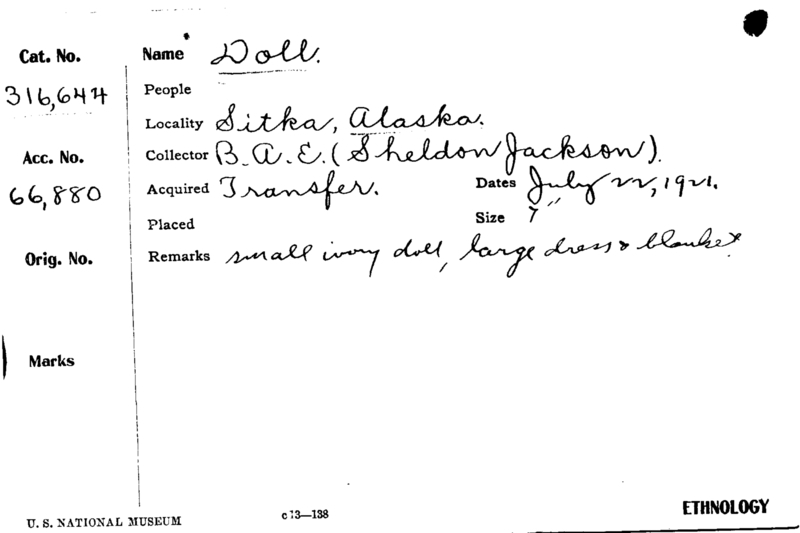 Cat. No. Name Doll.
316,644 People
Locality Sitka, Alaska.
Acc. No. Collector B.A.E. (Sheldon Jackson).
66,880 Acquired Transfer. Dates July 22, 1921.
Placed Size 7"
Orig. No. Remarks small ivory doll, large dress & blanket.
Marks
U. S. NATIONAL MUSEUM c13—138 ETHNOLOGY